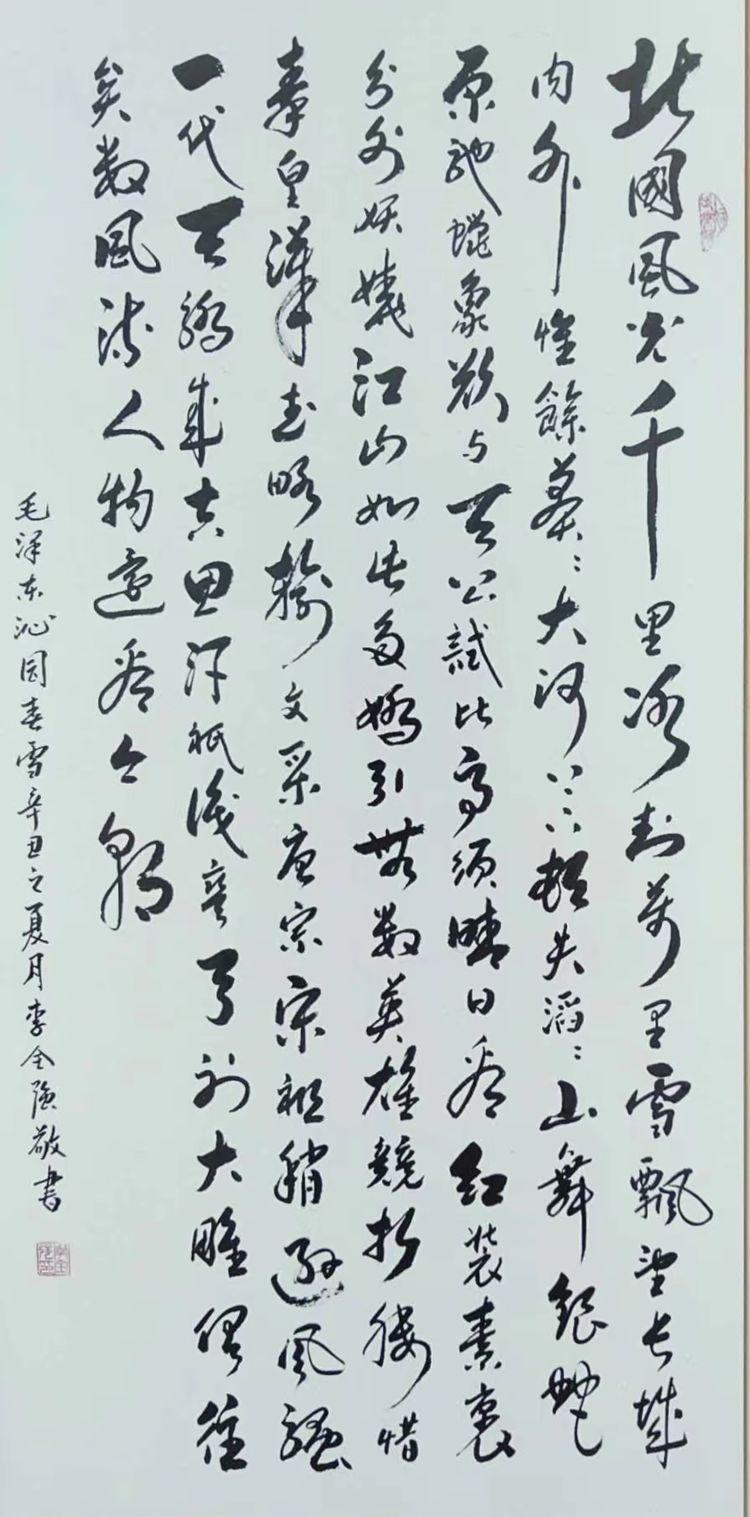 北國風光千里冰封萬里雪飄望長城
内外惟餘莽〻大河上下頓失滔〻山舞銀蛇
原馳蠟象欲与天公試比高須晴日看紅裝素裹
分外妖嬈江山如此多嬌引無數英雄競折腰惜
秦皇漢武略輸文采唐宗宋祖稍遜風騷
一代天驕成吉思汗祇識彎弓射大雕俱往
矣數風流人物還看今朝
毛泽东沁园春雪辛丑之夏月李全強敬書